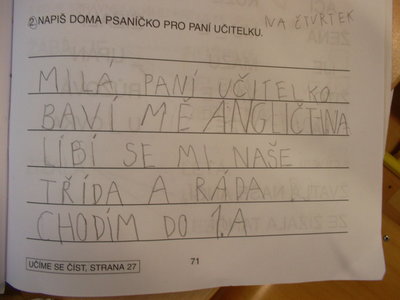 NA ČTVRTEK
2. NAPIŠ DOMA PSANÍČKO PRO PANÍ UČITELKU.
MILÁ PANÍ UČITELKO
BAVÍ MĚ ANGLIČTINA
LÍBÍ SE MI NAŠE
TŘÍDA A RÁDA
CHODÍM DO 1.A
71
UČÍME SE ČÍST, STRANA 27